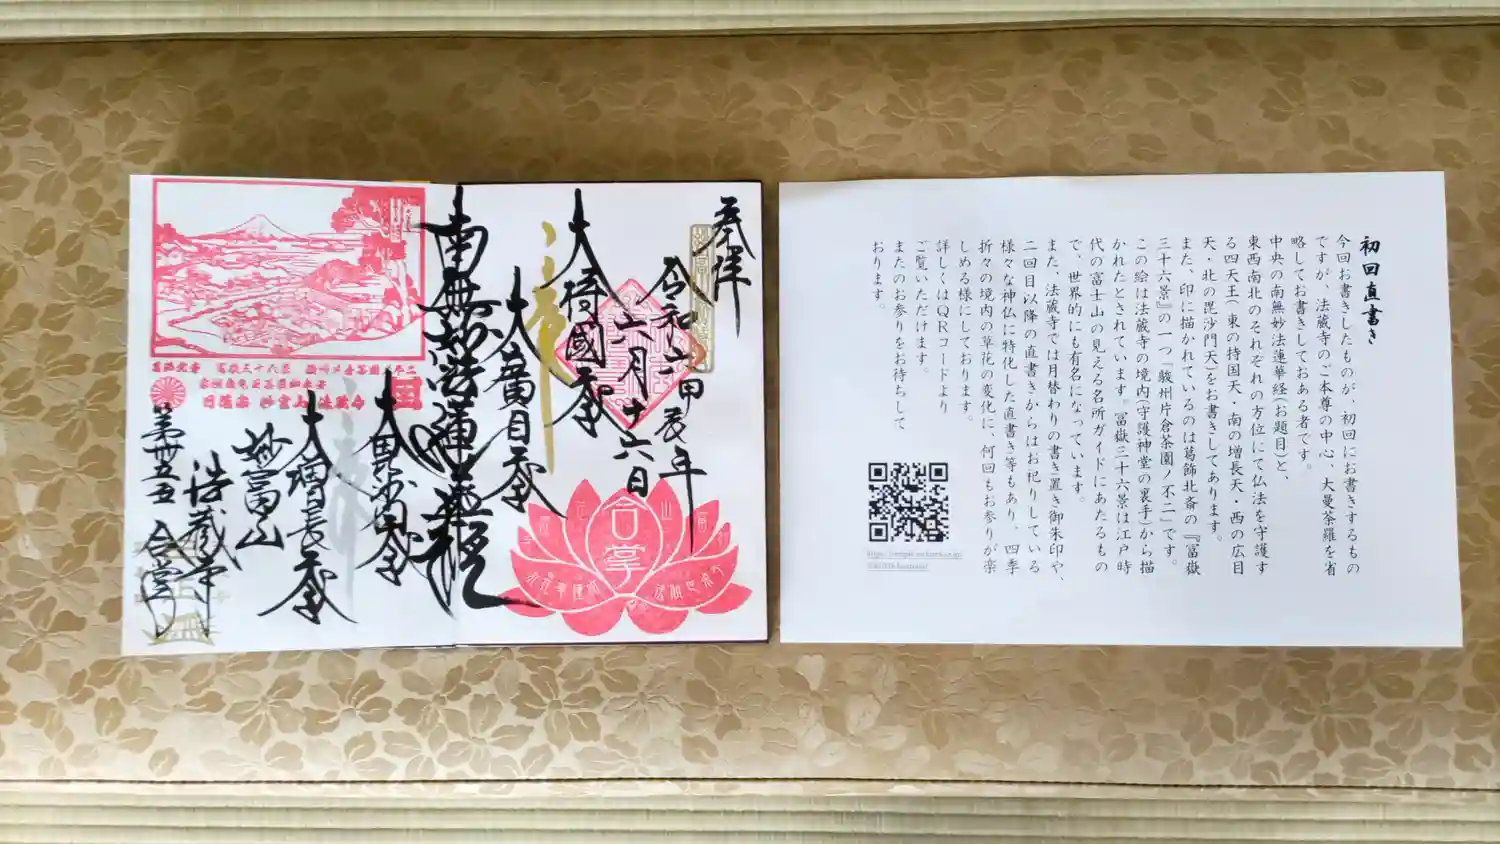 奉拝
令和六甲辰年
六月十六日
大持國天
大廣目天
南無妙法蓮華経
大毘沙門天
大増長天
妙富山
法蔵寺
第卅五五
合掌
合掌
日蓮宗 妙富山 法蔵寺
初回直書き
今回お書きしたものが、初回にお書きするもの
ですが、法蔵寺のご本尊の中心、大曼荼羅を省
略してお書きしておある者です。
中央の南無妙法蓮華経(お題目)と、
東西南北のそれぞれの方位にて仏法を守護す
る四天王(東の持国天・南の増長天・西の広目
天・北の毘沙門天)をお書きしてあります。
また、印に描かれているのは葛飾北斎の『冨嶽
三十六景』の一つ『駿州片倉茶園ノ不二』です。
この絵は法蔵寺の境内(守護神堂の裏手)から描
かれたとされています。冨嶽三十六景は江戸時
代の富士山の見える名所ガイドにあたるもの
で、世界的にも有名になっています。
また、法蔵寺では月替わりの書き置き御朱印や、
二回目以降の直書きからはお祀りしている
様々な神仏に特化した直書き等もあり、四季
折々の境内の草花の変化に、何回もお参りが楽
しめる様にしております。
詳しくはQRコードより
ご覧いただけます。
またのお参りをお待ちして
おります。